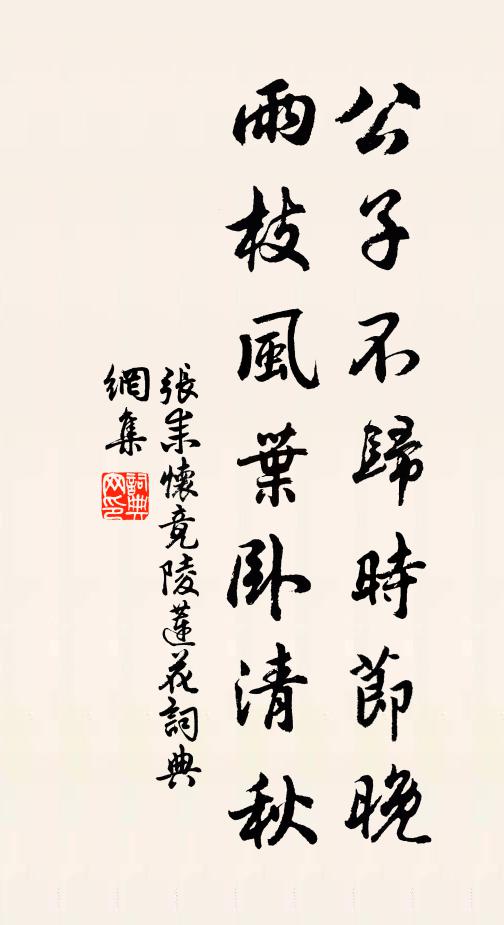 公子不歸時節晚
雨枝風葉臥清秋
張耒懷竟陵蓮花詞典
網集
詞典網印